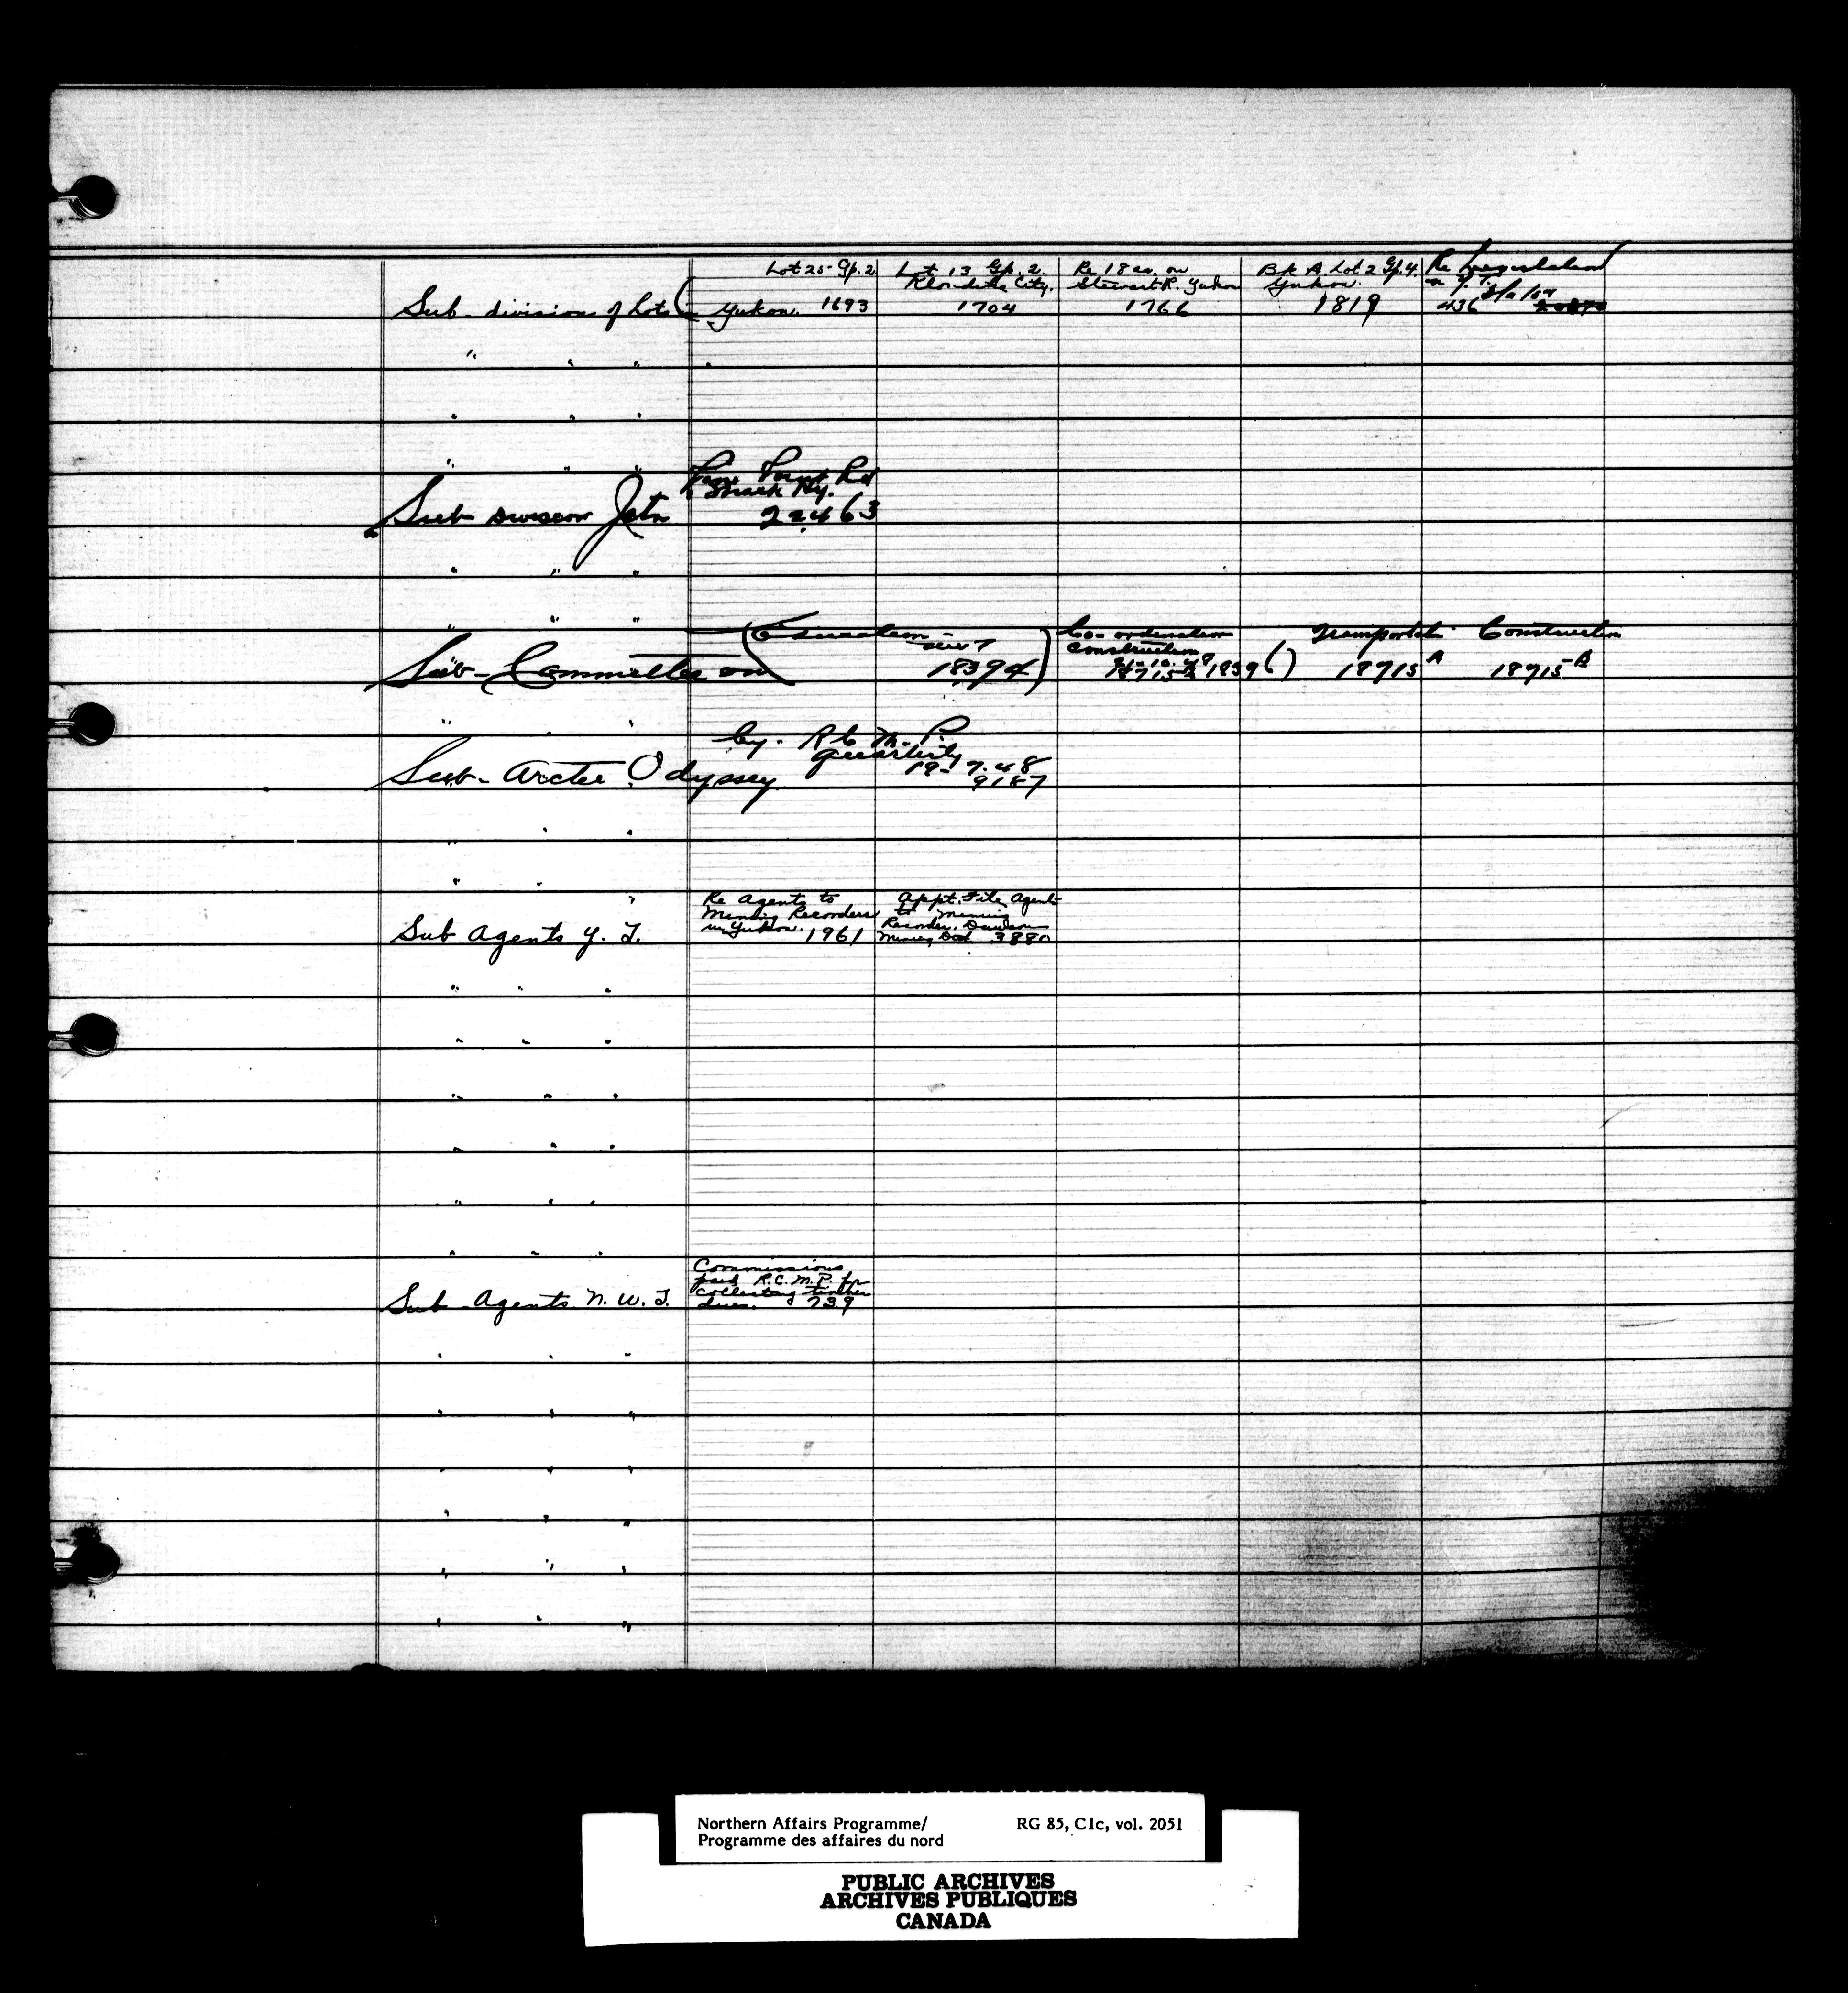 Lot 25 Gp. 2
Sub-divisions of Lots ( Yukon. 1693
Lot 13 Gp. 2.
Klondike City.
1704
Re 18 ac. on
Stewart R. Yukon
1766
Blk A. Lot 2 Gp. 4
Yukon.
1819
Re Legislation
in Y.T.
436
" " " "
" " "
" " "
Sub Division Jctn
22463
" " "
" " "
Sub-Committee on
( Education -
18394 )
Co-ordination
Construction
( )
Transportatn
18715 A
Construction
18715-B
" "
Sub-Arctic Odyssey
by. R C M. P.
Quarterly
19-7-48
9187
" " "
" " "
Sub Agents Y. T.
Re Agents to
Mining Recorders
in Yukon. 1961
Appt. File Agent
to Mining
Recorder, Dawson
Mining Dist 3880
" " "
" " "
" " "
" " "
" " "
" " "
Sub-Agents N. W. T.
Commissions
paid R.C.M.P. for
collecting timber
dues. 739
" " "
" " "
" " "
" " "
" " "
" " "
Northern Affairs Programme/
Programme des affaires du nord
RG 85, C1c, vol. 2051
PUBLIC ARCHIVES
ARCHIVES PUBLIQUES
CANADA